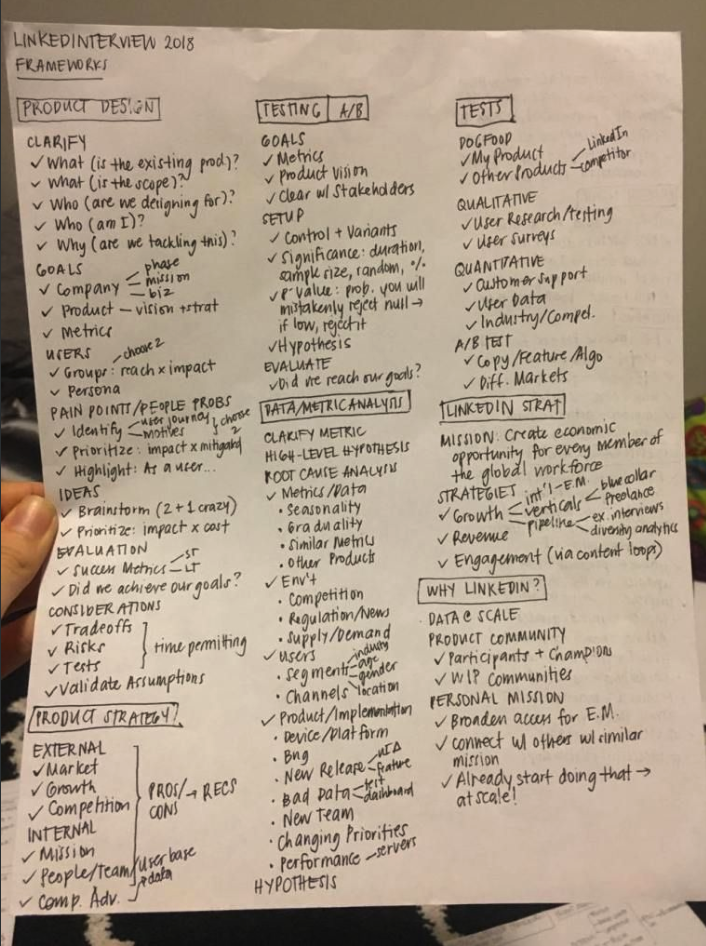 LINKEDINTERVIEW 2018
FRAMEWORKS
PRODUCT DESIGN
CLARIFY
✓ What (is the existing prod)?
✓ What (is the scope)?
✓ Who (are we designing for)?
✓ Who (am I)?
✓ Why (are we tackling this)?
GOALS
✓ Company — phase
mission
biz
✓ Product — vision + strat
✓ Metrics
USERS
✓ Groups: reach x impact choose 2
✓ Persona
PAIN POINTS/PEOPLE PROBS
✓ Identify — user journey
motives
choose 2
✓ Prioritize: impact x mitigand
✓ Highlight: As a user...
IDEAS
✓ Brainstorm (2 + 1 crazy)
✓ Prioritize: impact x cost
EVALUATION
✓ Success Metrics — ST
LT
✓ Did we achieve our goals?
CONSIDERATIONS
✓ Tradeoffs
✓ Risks
✓ Tests
time permitting
✓ Validate Assumptions
PRODUCT STRATEGY
EXTERNAL
✓ Market
✓ Growth
✓ Competition
INTERNAL
✓ Mission
✓ People/Team
✓ Comp. Adv.
user base
→ data
PROS/CONS → RECS
TESTING A/B
GOALS
✓ Metrics
✓ Product Vision
✓ Clear w/ Stakeholders
SETUP
✓ Control + Variants
✓ Significance: duration,
sample size, random, %
✓ P-Value: prob. you will
mistakenly reject null →
if low, reject it
✓ Hypothesis
EVALUATE
✓ Did we reach our goals?
DATA/METRIC ANALYSIS
CLARIFY METRIC
HIGH-LEVEL HYPOTHESIS
ROOT CAUSE ANALYSIS
✓ Metrics/Data
• Seasonality
• Graduality
• Similar Metrics
• Other Products
✓ Env't
• Competition
• Regulation/News
• Supply/Demand
✓ Users
• Segments — industry
age
gender
location
• Channels
✓ Product/Implementation
• Device/Platform
• Bug
• New Release — UI Δ
feature
• Bad Data — test
dashboard
• New Team
• Changing Priorities
• Performance — servers
HYPOTHESIS
TESTS
DOGFOOD
✓ My Product
✓ Other Products — LinkedIn
competitor
QUALITATIVE
✓ User Research/testing
✓ User Surveys
QUANTITATIVE
✓ Customer Support
✓ User Data
✓ Industry/Compet.
A/B TEST
✓ Copy/Feature/Algo
✓ Diff. Markets
LINKEDIN STRAT
MISSION: Create economic
opportunity for every member of
the global workforce
STRATEGIES
✓ Growth — int'l - E.M.
verticals — blue collar
freelance
pipeline — ex. interviews
diversity analytics
✓ Revenue
✓ Engagement (via content loops)
WHY LINKEDIN?
DATA @ SCALE
PRODUCT COMMUNITY
✓ Participants + Champion
✓ WIP Communities
PERSONAL MISSION
✓ Broaden access for E.M.
✓ connect w/ others w/ similar
mission
✓ Already start doing that →
at scale!